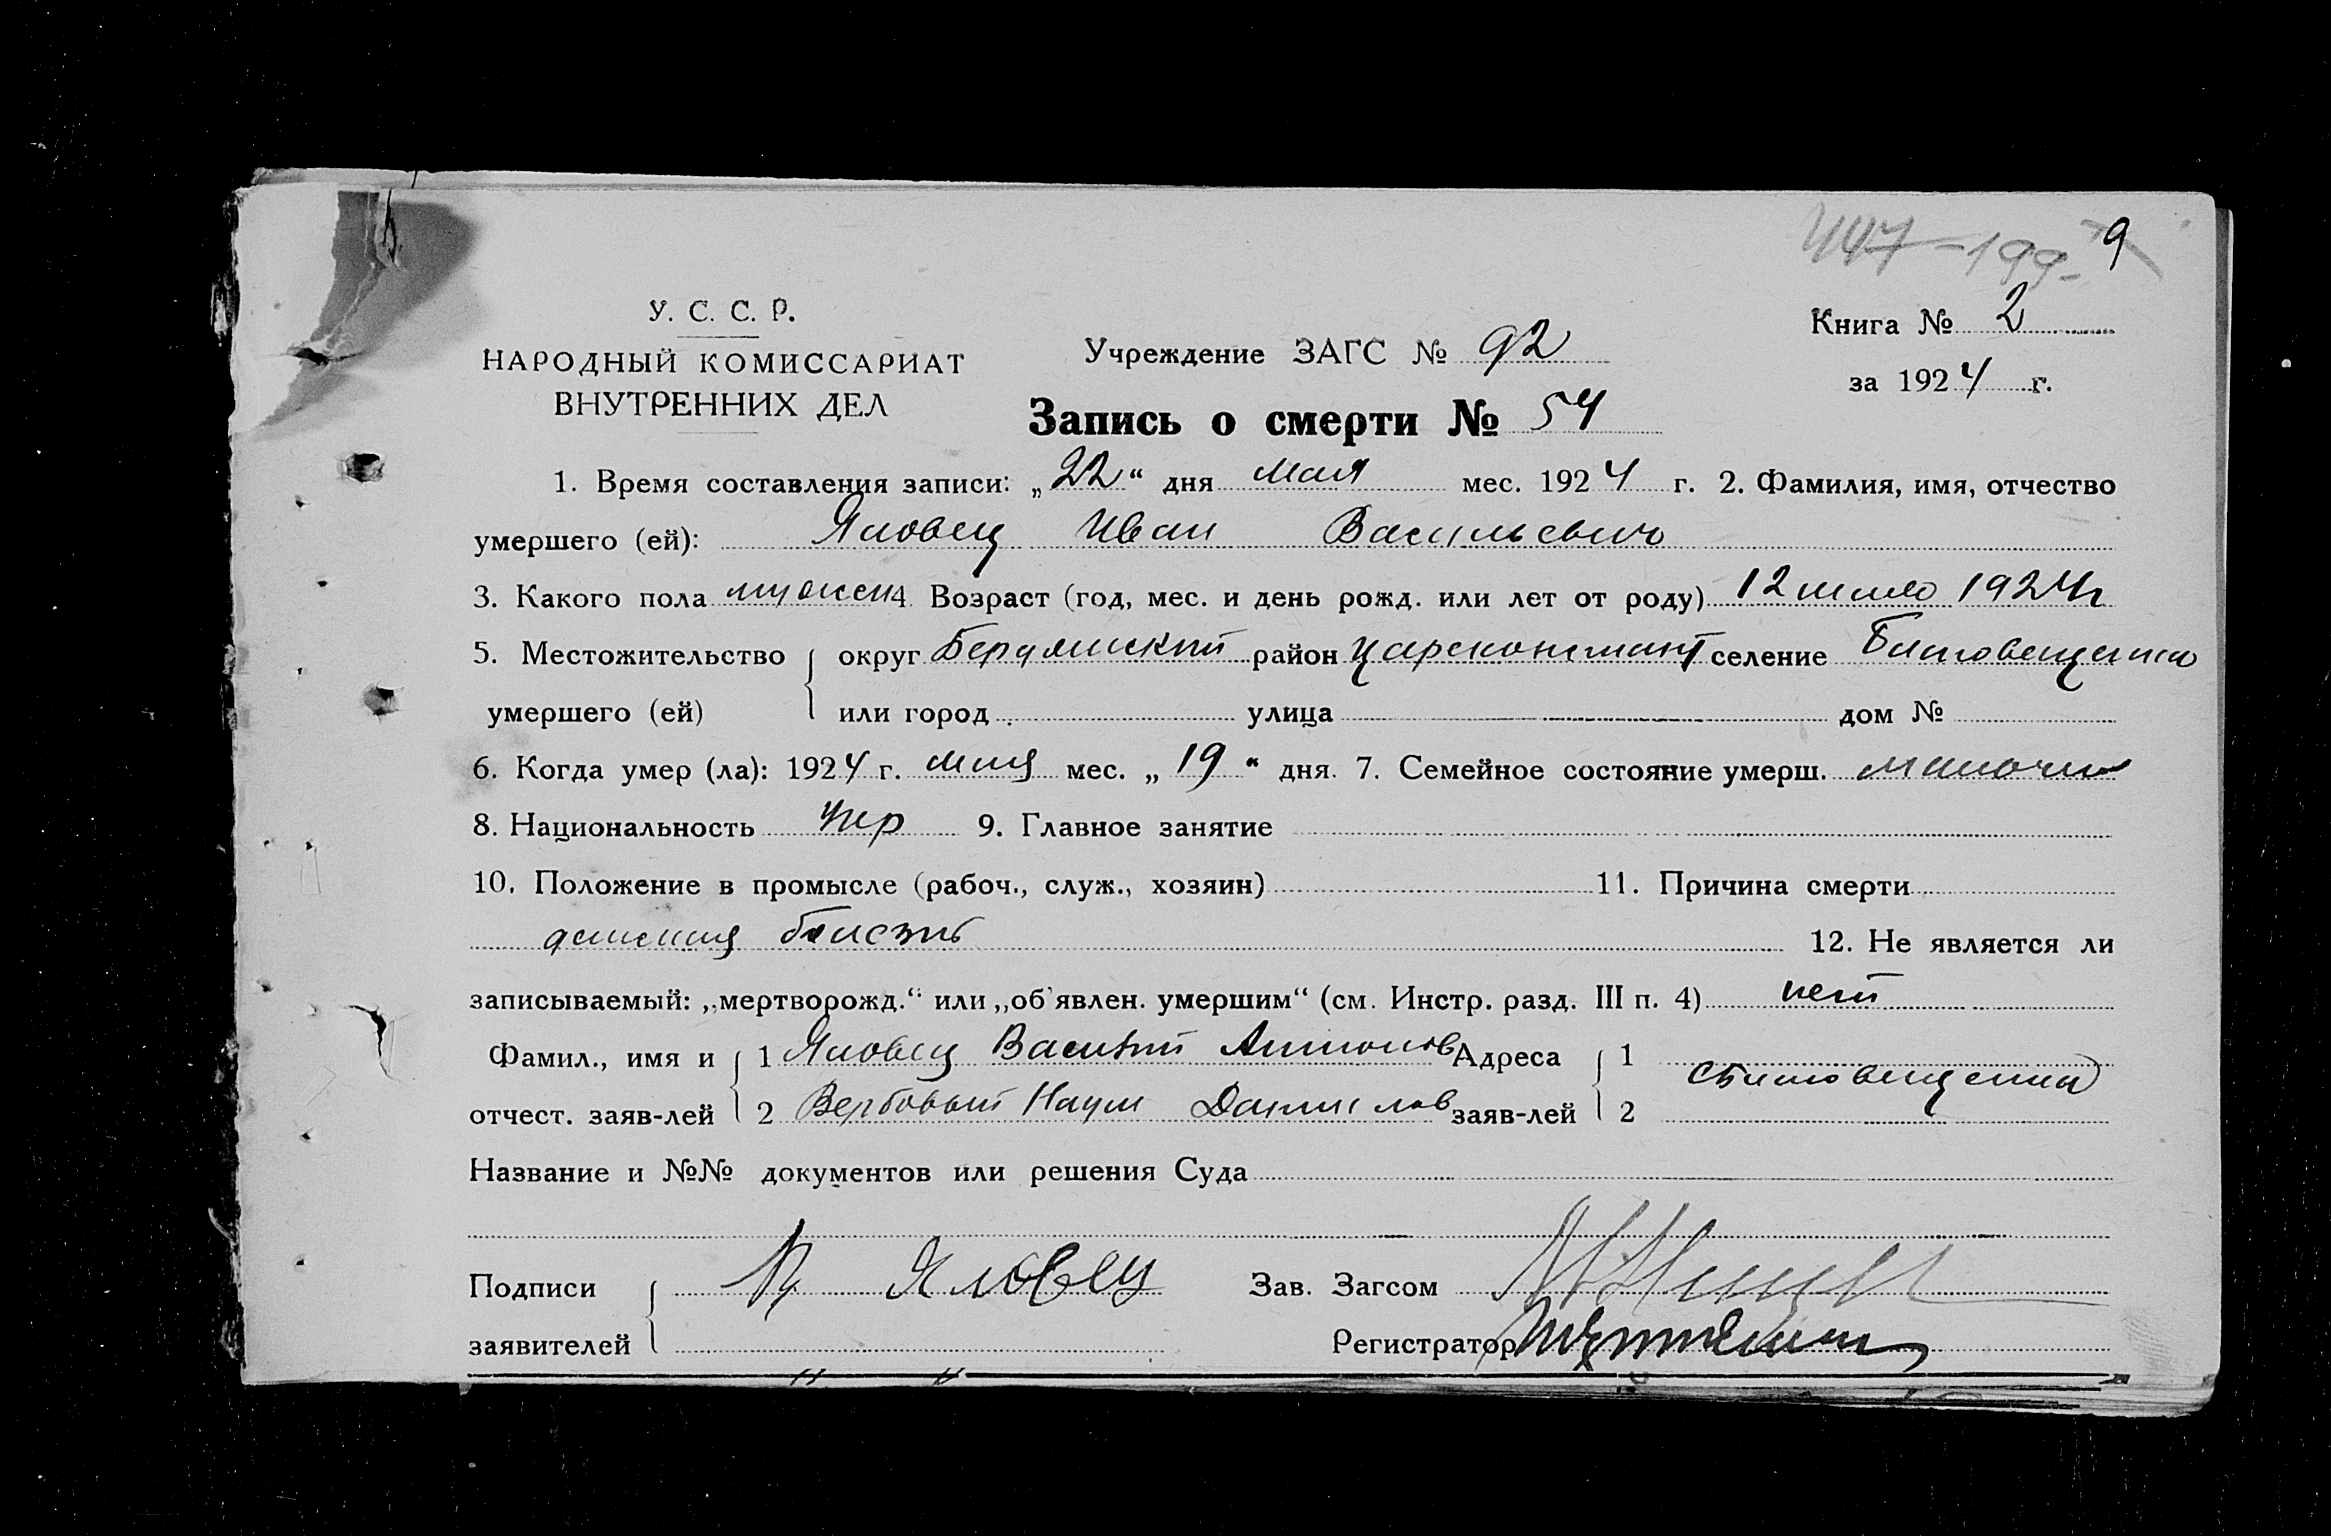 447-199- 9
У. С. С. Р.
НАРОДНЫЙ КОМИССАРИАТ
ВНУТРЕННИХ ДЕЛ
Учреждение ЗАГС № 92
Книга № 2
за 1924 г.
Запись о смерти № 54
1. Время составления записи: „22“ дня мая мес. 1924 г. 2. Фамилия, имя, отчество
умершего (ей): Яловец Иван Васильевич
3. Какого пола мужск 4. Возраст (год, мес. и день рожд. или лет от роду) 12 1924 г
5. Местожительство округ Бердянский район Цареконстант селение Благовещенка
умершего (ей) или город улица дом №
6. Когда умер (ла): 1924 г. мая мес. „19“ дня. 7. Семейное состояние умерш.
8. Национальность Укр 9. Главное занятие
10. Положение в промысле (рабоч., служ., хозяин) 11. Причина смерти
детская болезнь 12. Не является ли
записываемый: „мертворожд.“ или „об'явлен. умершим“ (см. Инстр. разд. III п. 4) нет
Фамил., имя и 1 Яловец Василий Антонов Адреса 1
с Благовещенка
отчест. заяв-лей 2 Вербовый Наум Данилов заяв-лей 2
Название и №№ документов или решения Суда
Подписи Яловец Зав. Загсом
заявителей Регистратор